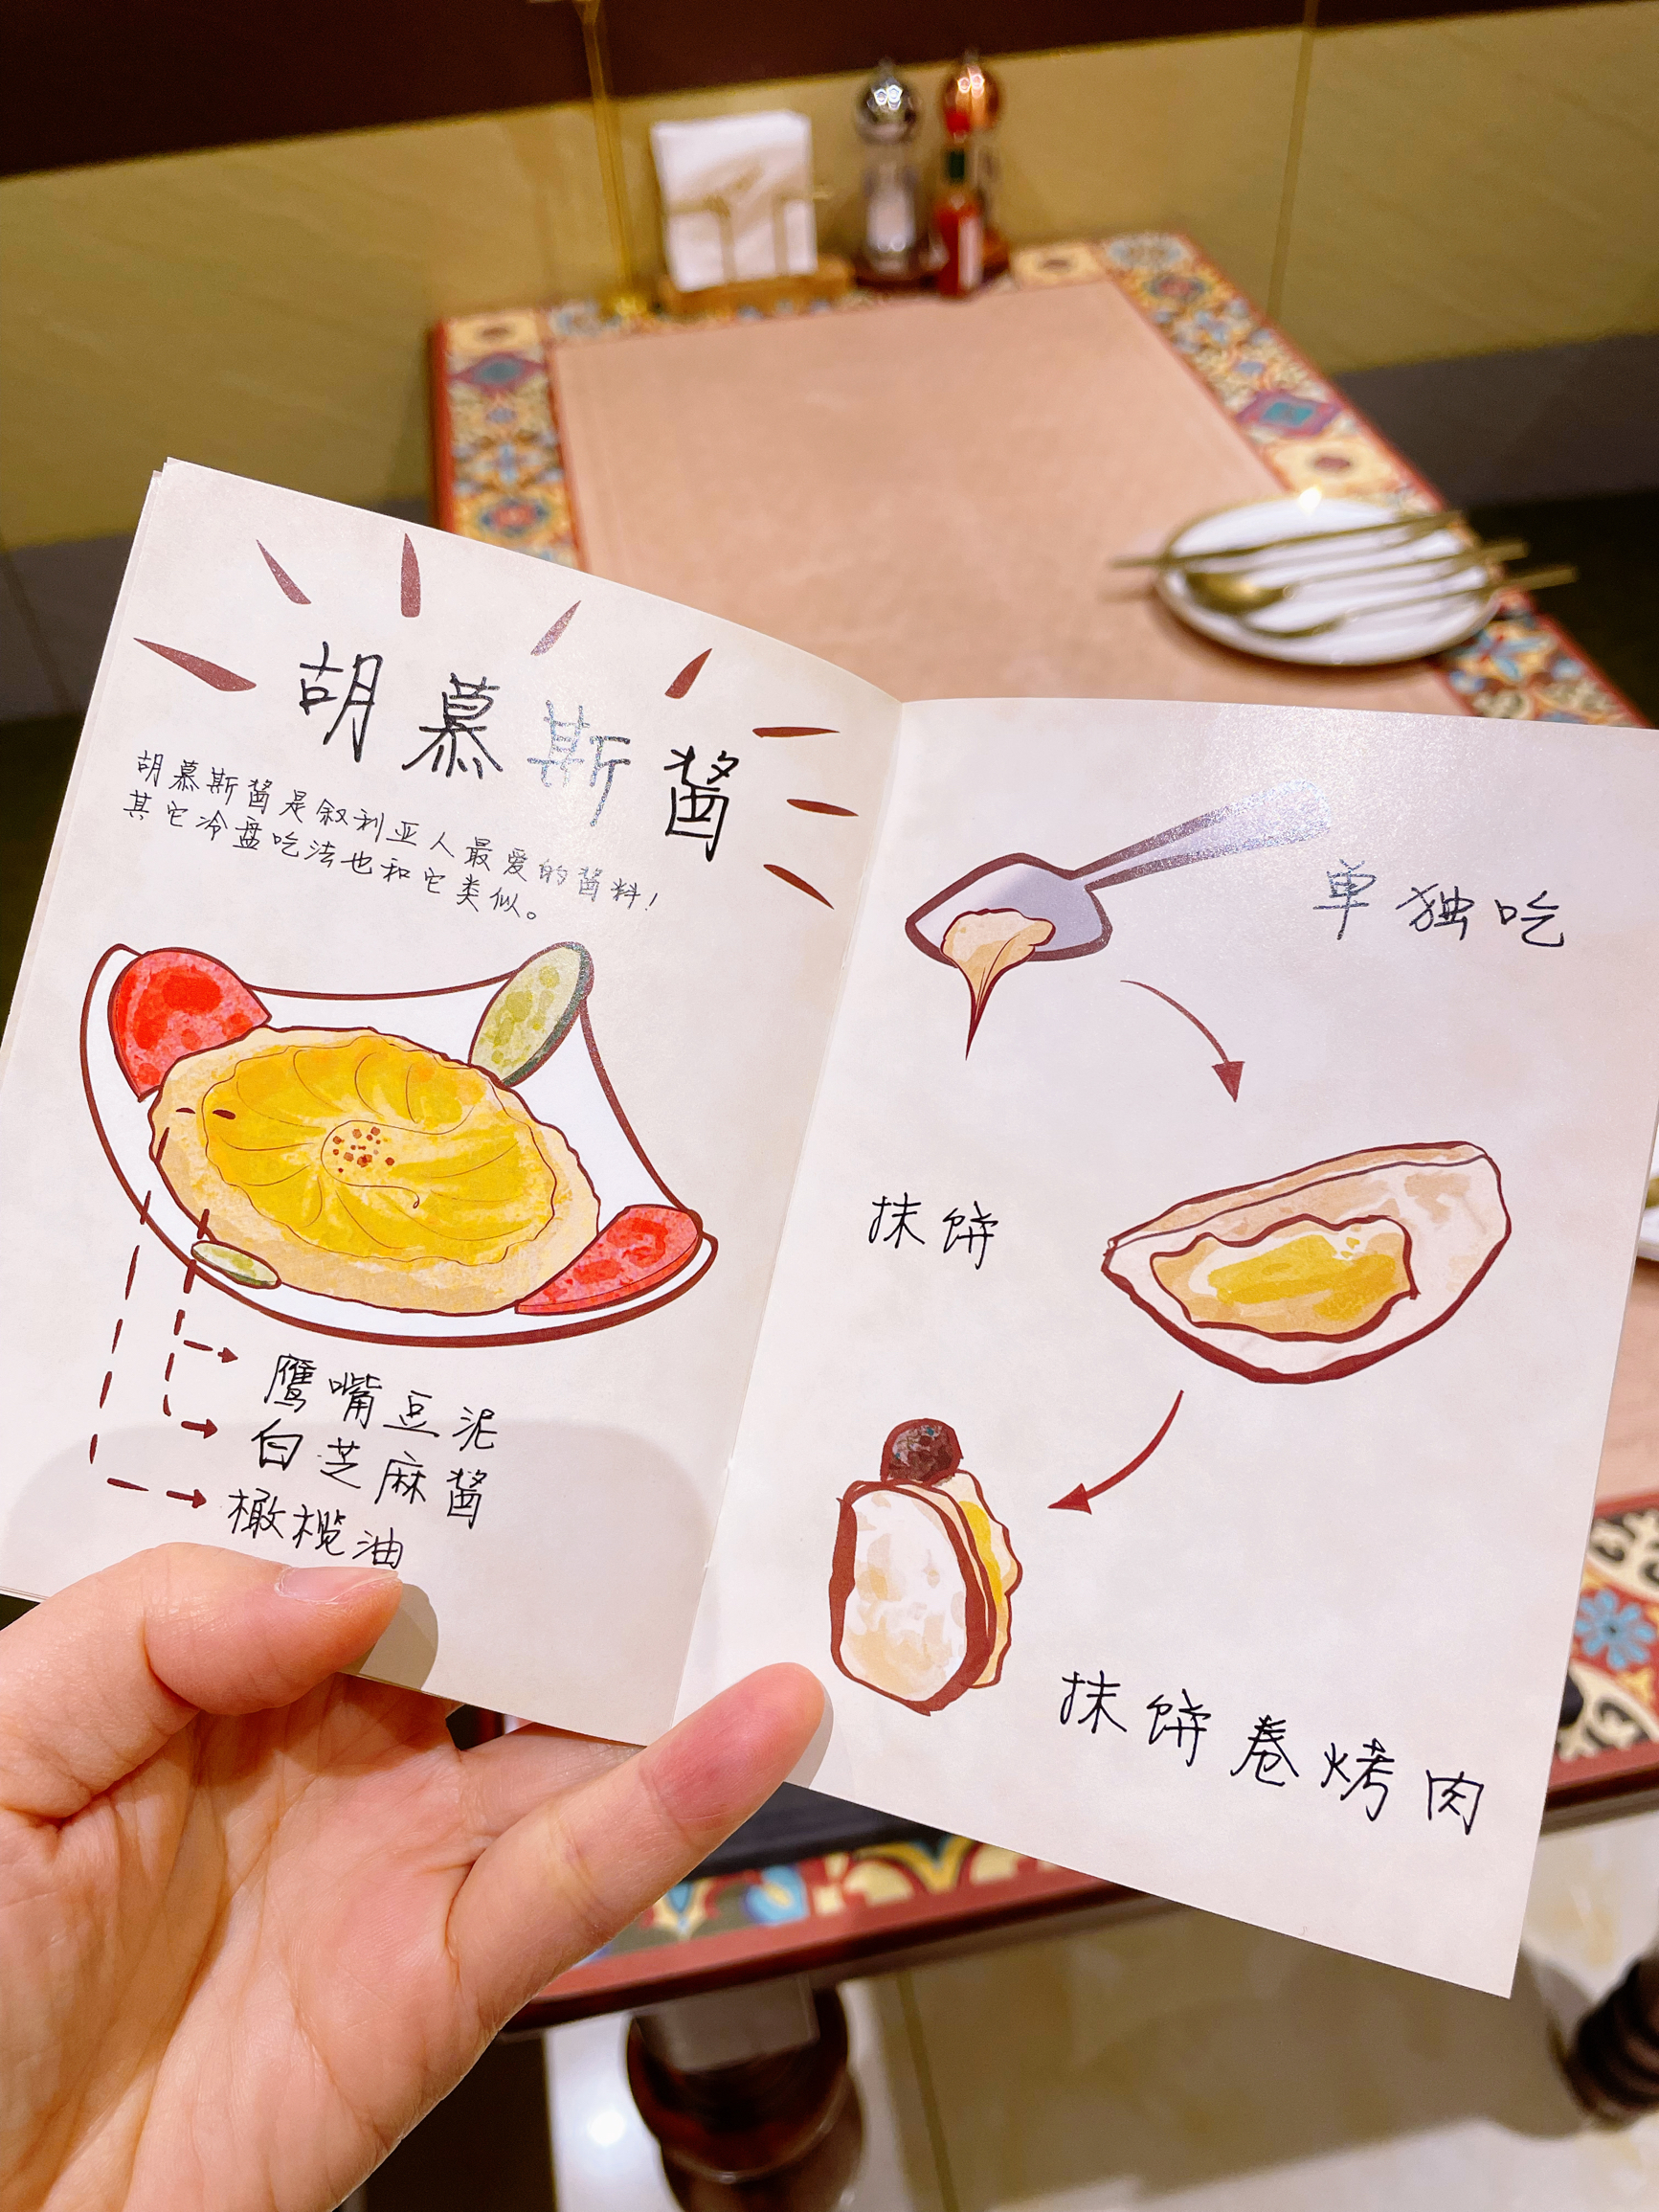 胡慕斯酱
胡慕斯酱是叙利亚人最爱的酱料！
其它冷盘吃法也和它类似。
鹰嘴豆泥
白芝麻酱
橄榄油
单独吃
抹饼
抹饼卷烤肉